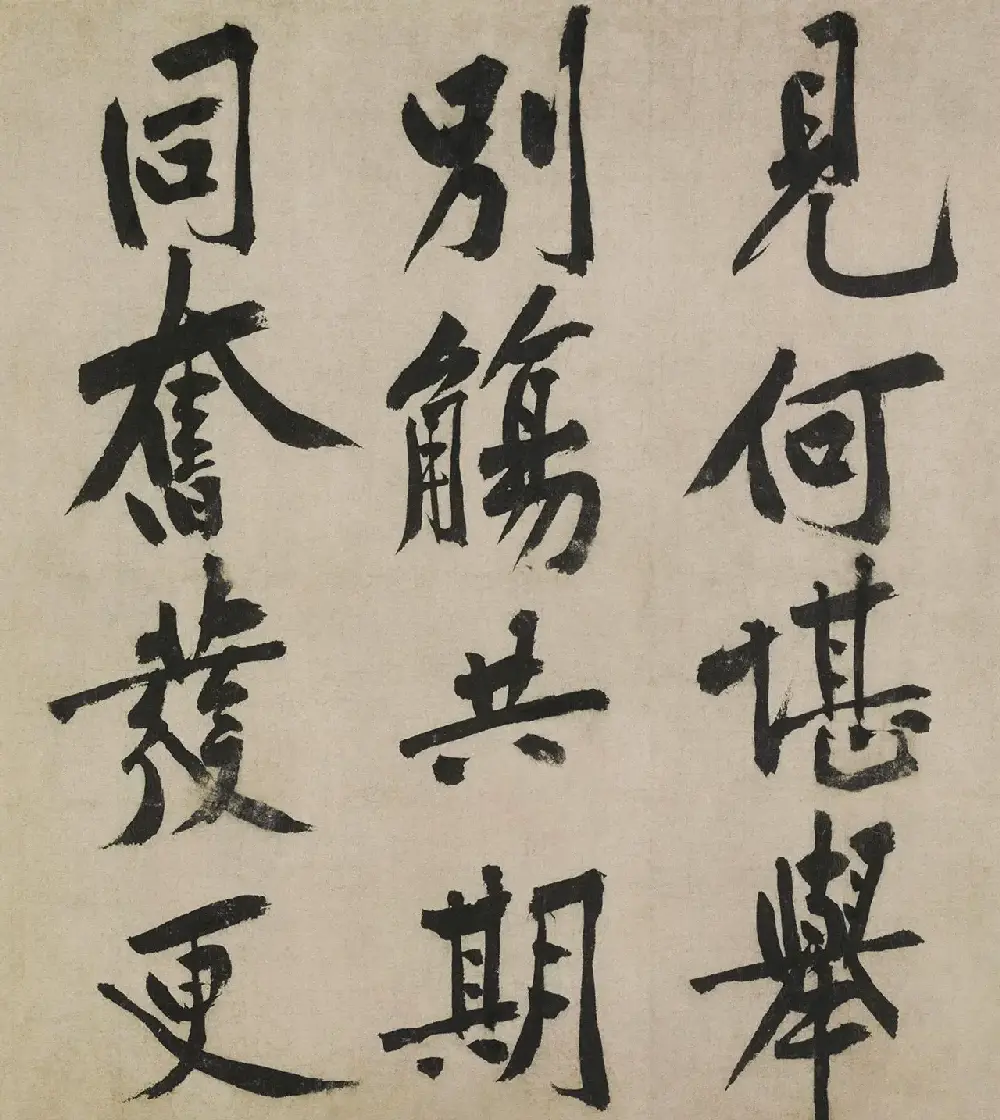 見何堪舉
別觴共期
同奮發更